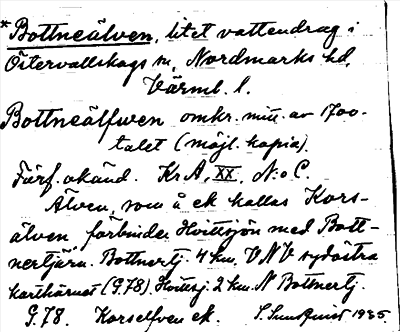 * Bottneälven, litet vattendrag i
Östervallskogs sn, Nordmarks hd,
Värml. l.
Bottneälfwen omkr. mitt. av 1700-
talet (möjl. kopia).
Förf. okänd. Kr A, XX, N:o C.
Älven, som å ek kallas Kors-
älven, förbinder Hvittsjön med Bott-
nertjärn. Bottnertj. 4 km. VNV sydöstra
karthörnet (G.78). Hvittsj. 2 km. N Bottnertj.
G.78. Korselfven ek. S. Sundquist 1935